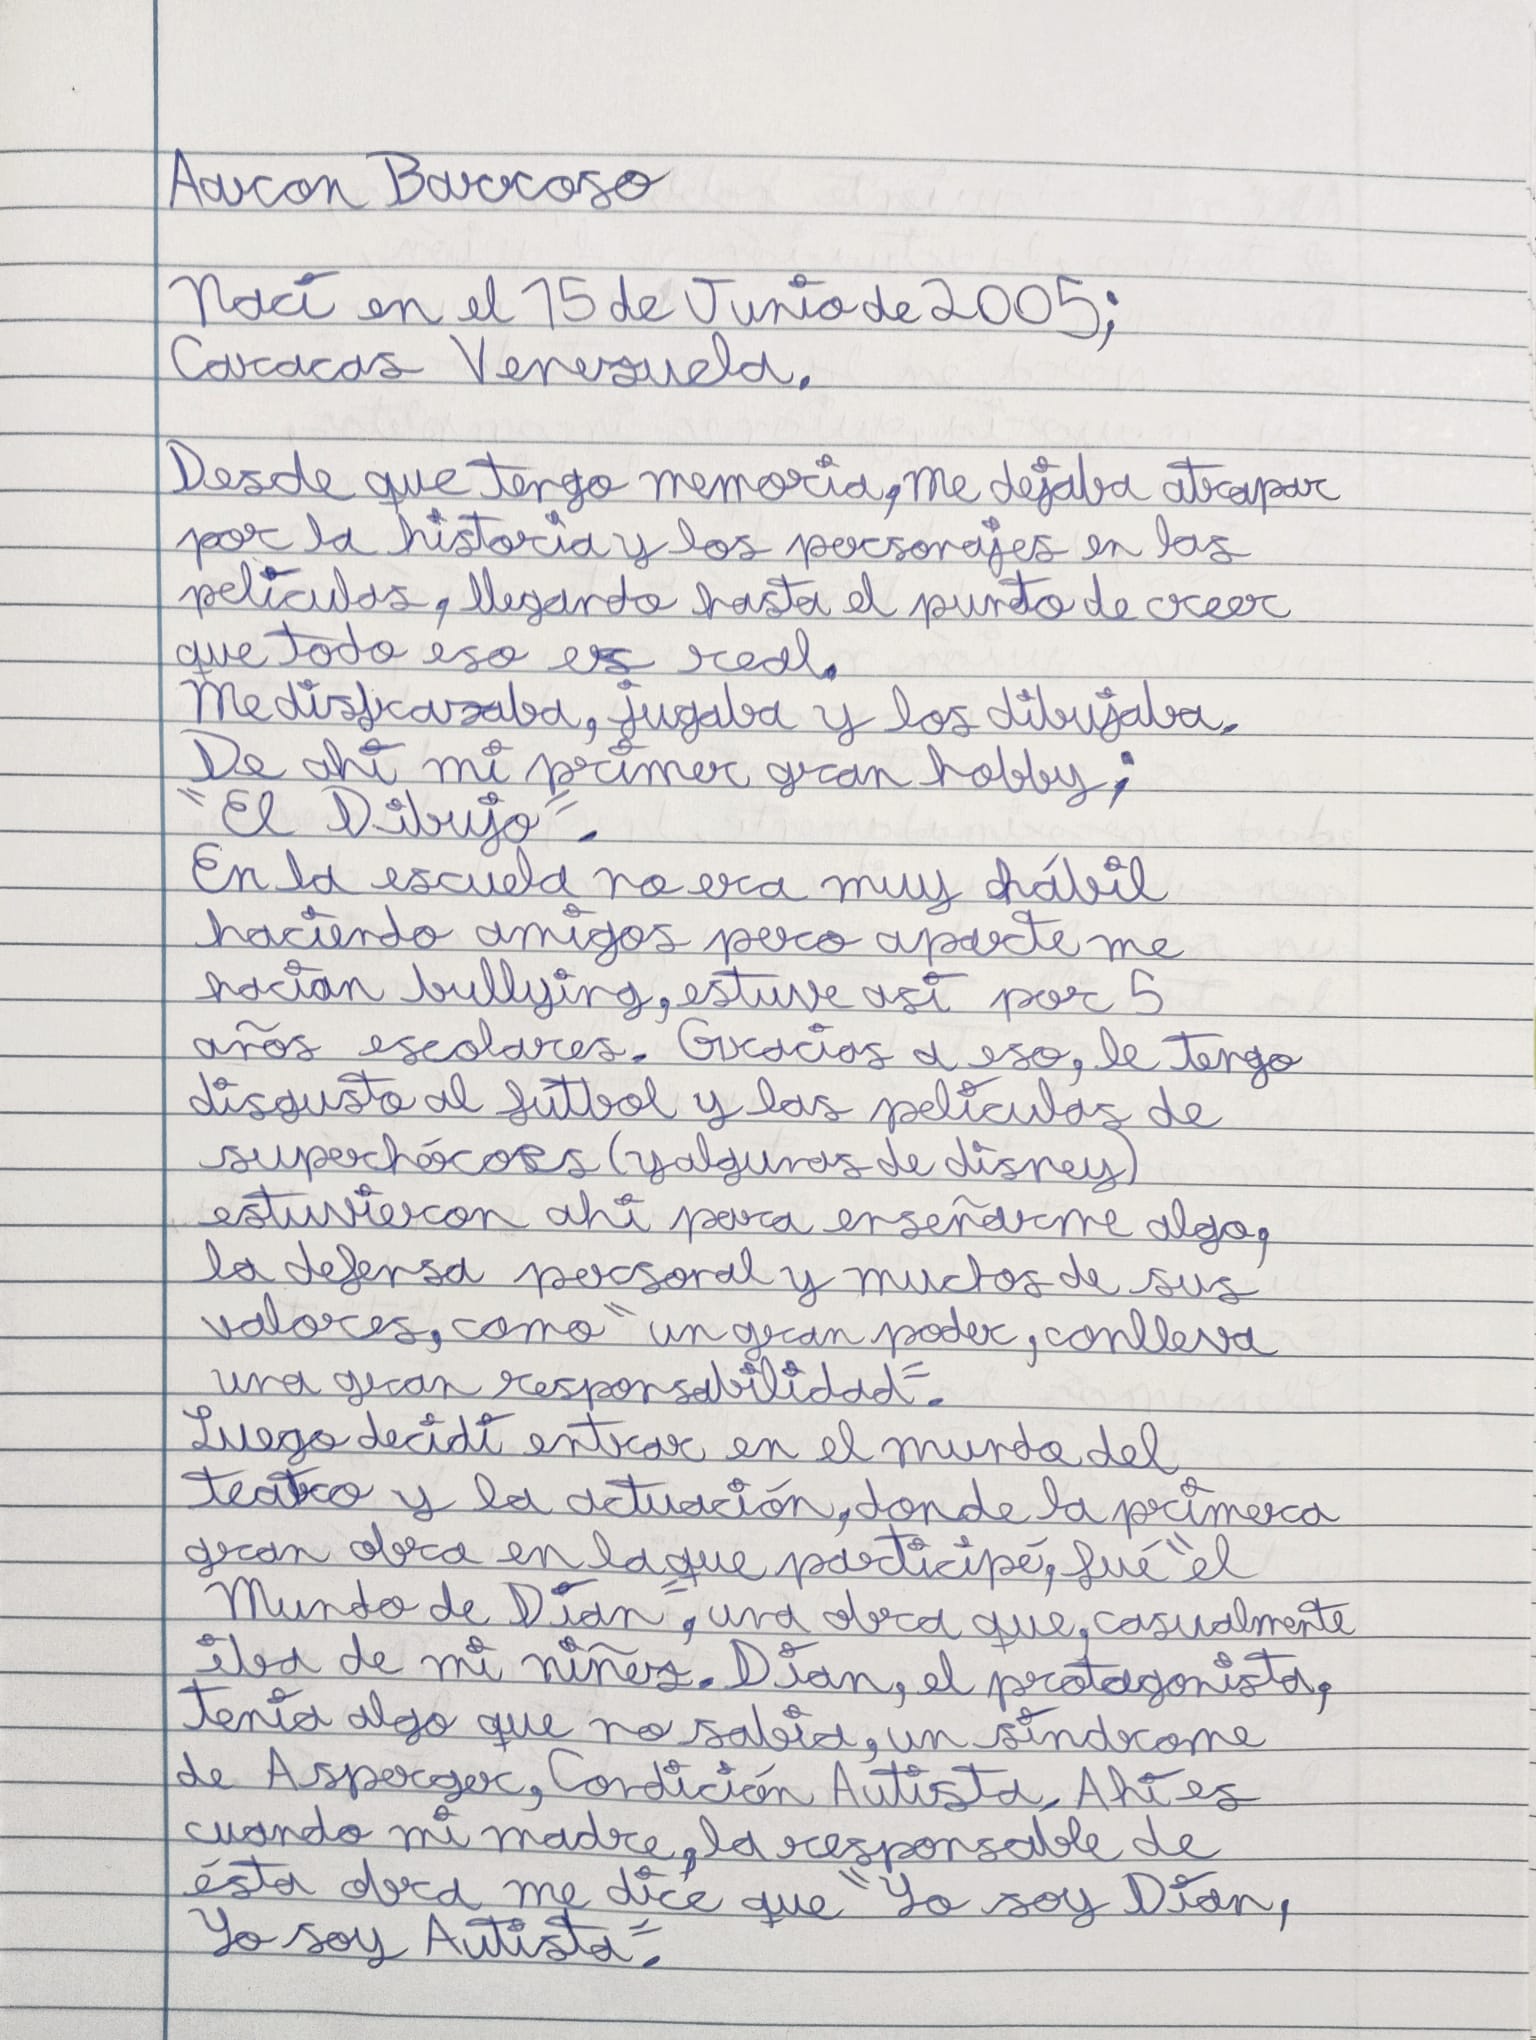 Aaron Barroso
Nací en el 15 de Junio de 2005;
Caracas Venezuela.
Desde que tengo memoria, me dejaba atrapar
por la historia y los personajes en las
películas, llegando hasta el punto de creer
que todo eso es real.
Me disfrazaba, jugaba y los dibujaba.
De ahí mi primer gran hobby;
"El Dibujo".
En la escuela no era muy hábil
haciendo amigos pero aparte me
hacían bullying, estuve así por 5
años escolares. Gracias a eso, le tengo
disgusto al fútbol y las películas de
superhéroes (y algunas de disney)
estuvieron ahí para enseñarme algo,
la defensa personal y muchos de sus
valores, como "un gran poder, conlleva
una gran responsabilidad".
Luego decidí entrar en el mundo del
teatro y la actuación, donde la primera
gran obra en la que participé, fué "el
Mundo de Dían", una obra que, casualmente
iba de mi niñez. Dían, el protagonista,
tenía algo que no sabía, un síndrome
de Asperger, Condición Autista. Ahí es
cuando mi madre, la responsable de
ésta obra me dice que "Yo soy Dían,
Yo soy Autista".